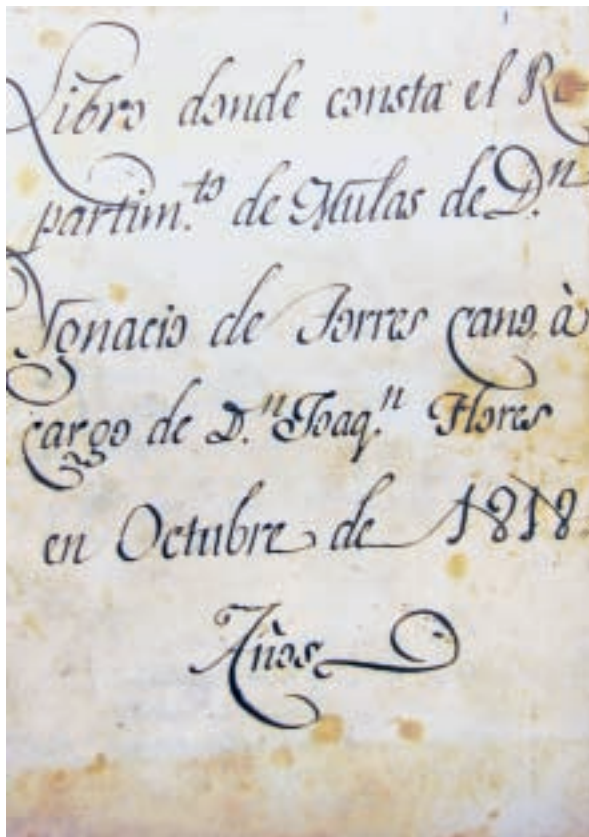 Libro donde consta el Re-
partim.to de Mulas de D.n
Ygnacio de Torres cano à
cargo de D.n Joaq.n Flores
en Octubre de 1818
Años